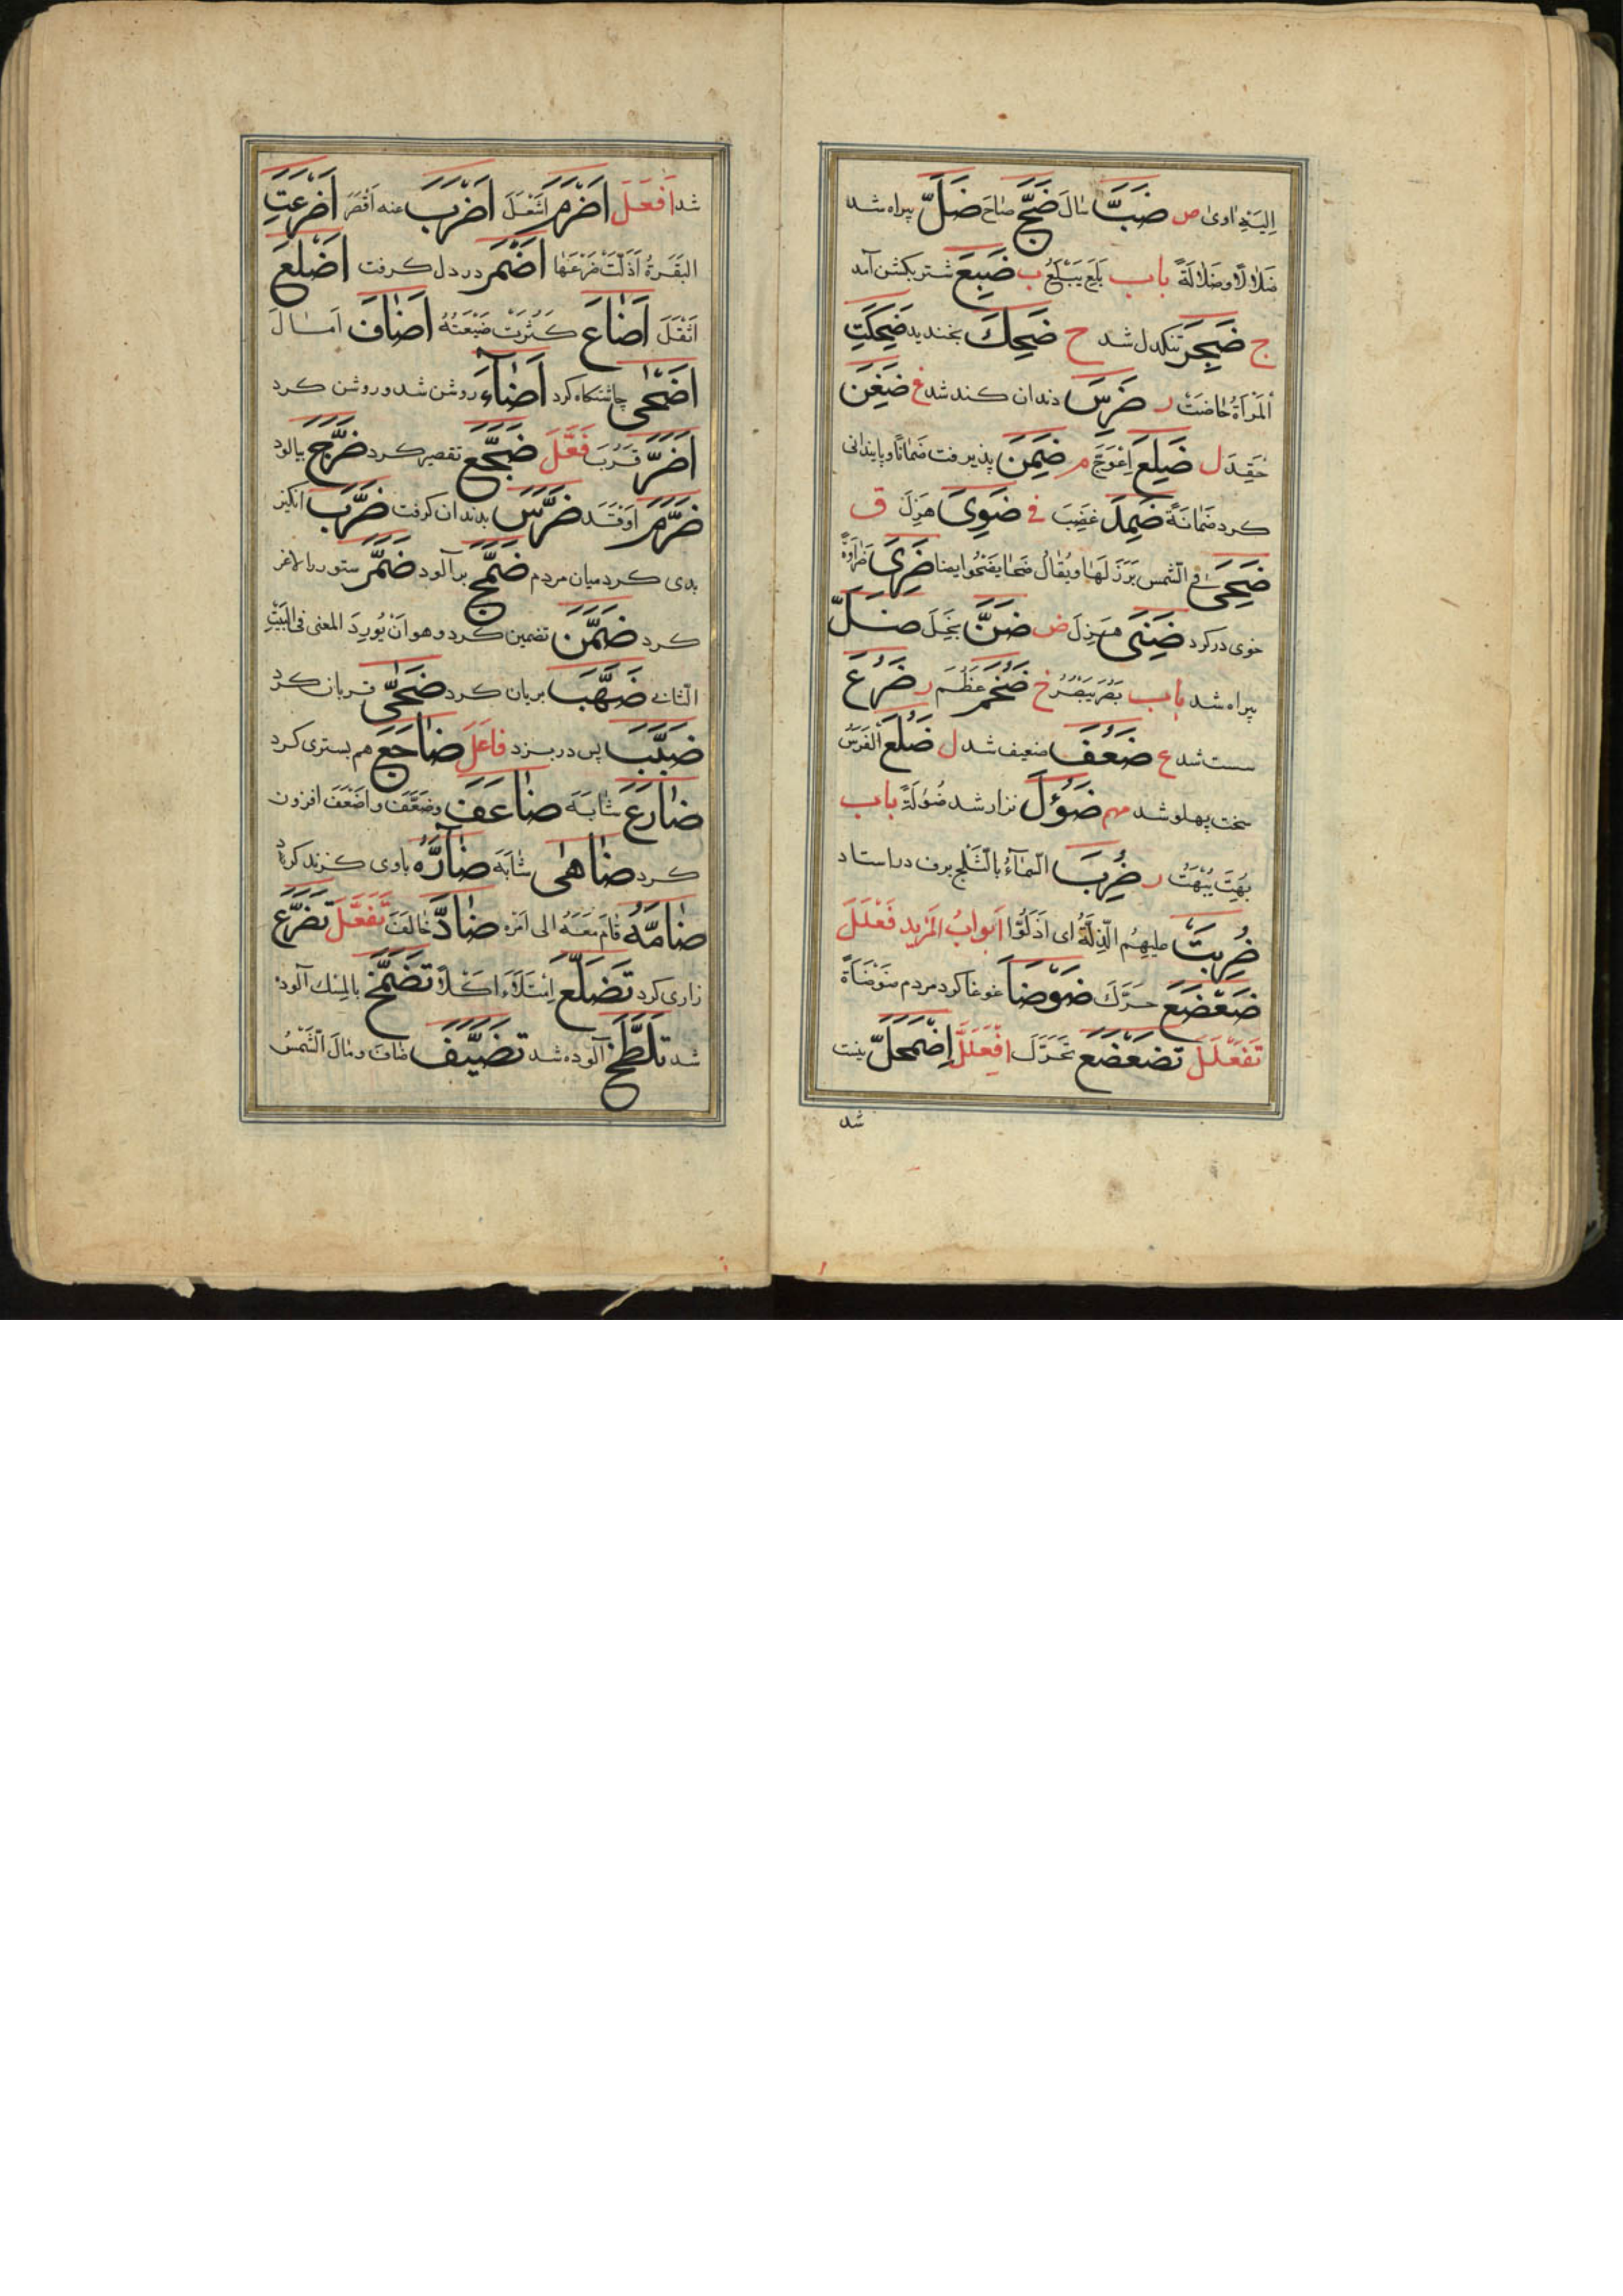 اِلَیْهِ اوی ص ضَبَّ سَالَ ضَجَّ صَاحَ ضَلَّ بیراه شد
ضَلَالًا وضَلَالَةً باب بَلِعَ یَبْلَعُ ب ضَبِعَ شتر بکشن آمد
ج ضَجِرَ تنکدل شد ح ضَحِكَ بخندید ضَحِكَتِ
اَلْمَرْأَةُ حَاضَتْ ر ضَرِسَ دندان کند شد غ ضَغِنَ
حَقِدَ ل ضَلِعَ اِعْوَجَّ م ضَمِنَ پذیرفت ضَمَانًا وپایندانی
کرد ضَمَانَةً ضَمِدَ غَضِبَ فی ضَوِیَ هَزِلَ ق
ضَحِیَ فی الشّمس بَرَزَ لَهَا ویُقَالُ ضَحَا یَضْحُو ایضا ضَرِیَ ضَرَاوَةً
خوی درکرد ضَنِیَ هَزِلَ ض ضَنَّ بَخِلَ ضَلَّ
بیراه شد باب بَصُرَ یَبْصُرُ خ ضَخُمَ عَظُمَ ر ضَرُعَ
سست شد ع ضَعُفَ ضعیف شد ل ضَلُعَ الْفَرَسُ
سخت پهلو شد مهم ضَؤُلَ نزار شد ضُؤلَةً باب
بُهِتَ یُبْهَتُ ر ضُرِبَ الْمَآءُ بالثَّلْجِ برف دراستاد
ضُرِبَتْ علیهِم الذِّلَّةُ ای اَذَلُّوا اَبوابُ المَزید فَعْلَلَ
ضَعْضَعَ حَرَّكَ ضَوْضَا غوغا کرد مردم ضَوْضَاةً
تَفَعْلَلَ تَضَعْضَعَ تَحَرَّكَ اِفْعَلَلَّ اِضْمَحَلَّ نیست
شد
شد اَفْعَلَ اَضْرَمَ اَشْعَلَ اَضْرَبَ عنه اَقْصَرَ اَضْرَعَتِ
البَقَرَةُ اَذَلَّتْ ضَرْعَهَا اَضْمَرَ در دل کرفت اَضْلَعَ
اَثْقَلَ اَضَاعَ کَثُرَتْ ضَیْعَتُهُ اَضَافَ اَمَالَ
اَضْحٰی چاشتکاه کرد اَضَآءَ روشن شد وروشن کرد
اَضَرَّ قَرُبَ فَعَّلَ ضَجَّعَ تقصیر کرد ضَرَّجَ بیالود
ضَرَّمَ اَوْقَدَ ضَرَّسَ بدندان کرفت ضَرَّبَ انکیز
بدی کرد میان مردم ضَمَّخَ برآلود ضَمَّرَ ستور را لاغر
کرد ضَمَّنَ تضمین کرد وهو اَنْ یُورِدَ المعنی فی البَیْتِ
الثّانی ضَهَّبَ بریان کرد ضَحّٰی قربان کرد
ضَبَّبَ پس در بزد فاعَلَ ضَاجَعَ هم بستری کرد
ضَارَعَ شَابَهَ ضَاعَفَ وضَعَّفَ واَضْعَفَ افزون
کرد ضَاهٰی شَابَهَ ضَآرَّهُ باوی کزند کرد
ضَامَّهُ قَامَ مَعَهُ الی اَمْرٍ ضَادَّ خَالَفَ تَفَعَّلَ تَضَرَّعَ
زاری کرد تَضَلَّعَ اِمْتَلَاَ اَکْلًا تَضَمَّخَ بالمِسْك آلوده
شد تَلَطَّخَ آلوده شد تَضَیَّفَ ضَافَ ومَالَ الشَّمْسُ